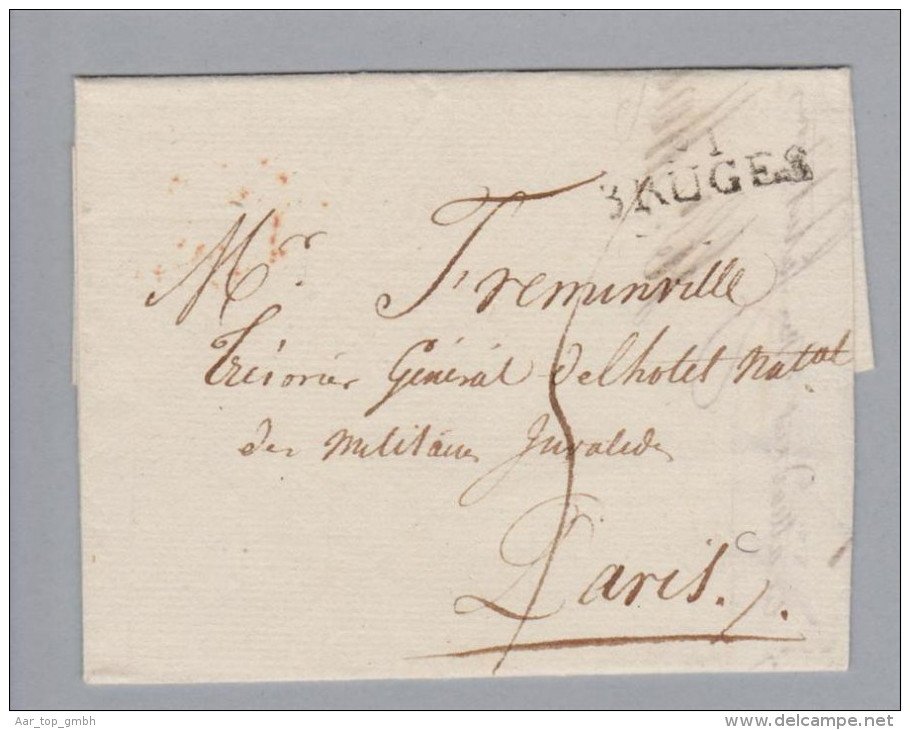 91
BRUGES
Mr. Freminville
Trésorier Général delhotel Natal
des Militaires Invalides
Paris.
5
Aar_top_gmbh
www.delcampe.net